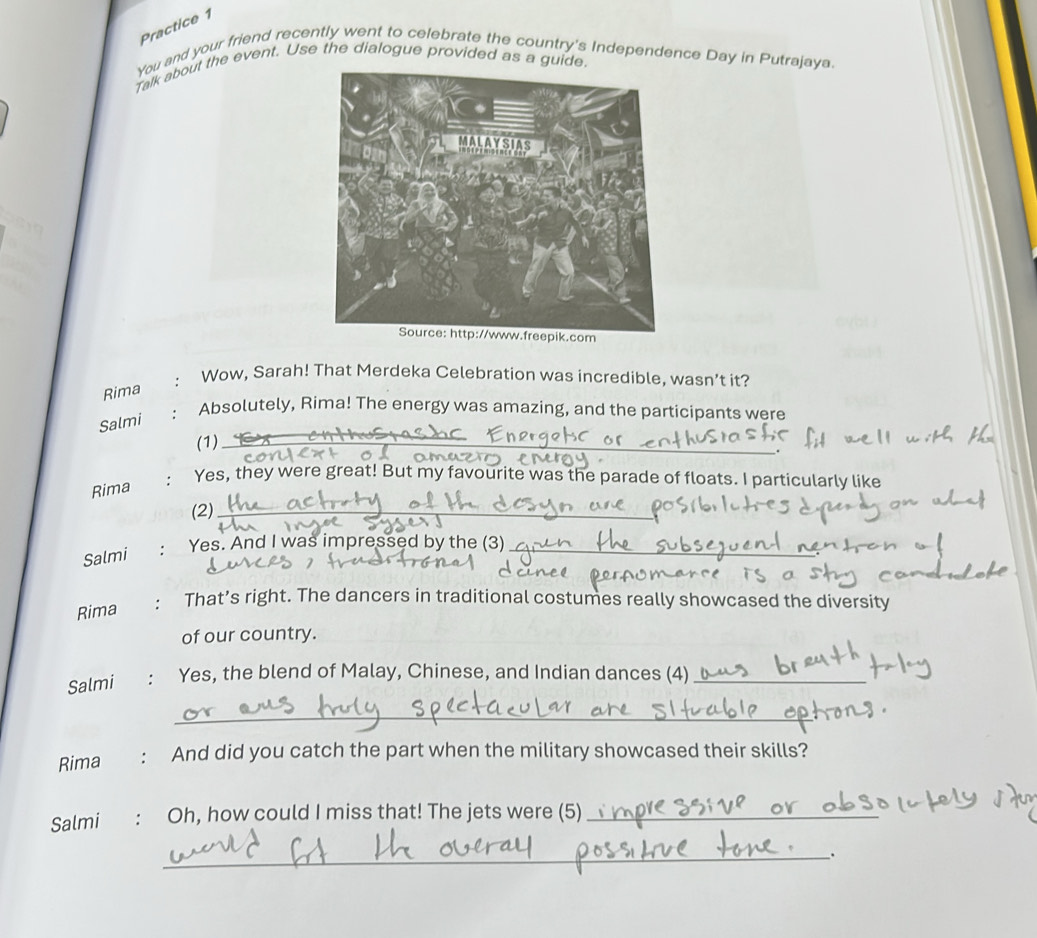 Practice 1
You and your friend recently went to celebrate the country's Independence Day in Putrajaya.
Talk about the event. Use the dialogue provided as a guide.
MALAYSIAS
INDEPENDENCE DAY
Source: http://www.freepik.com
Rima : Wow, Sarah! That Merdeka Celebration was incredible, wasn't it?
Salmi : Absolutely, Rima! The energy was amazing, and the participants were
(1) enthusrastic Energetic or enthusiastic fit well with the
context of amazing energy.
Rima : Yes, they were great! But my favourite was the parade of floats. I particularly like
(2) the of the are on what
the
Salmi : Yes. And I was impressed by the (3) given the subsequent of
traditional dance is a candidate
Rima : That's right. The dancers in traditional costumes really showcased the diversity
of our country.
Salmi : Yes, the blend of Malay, Chinese, and Indian dances (4) breath
or truly spectacular are options.
Rima : And did you catch the part when the military showcased their skills?
Salmi : Oh, how could I miss that! The jets were (5) impressive or absolutely
would fit the overall tone.